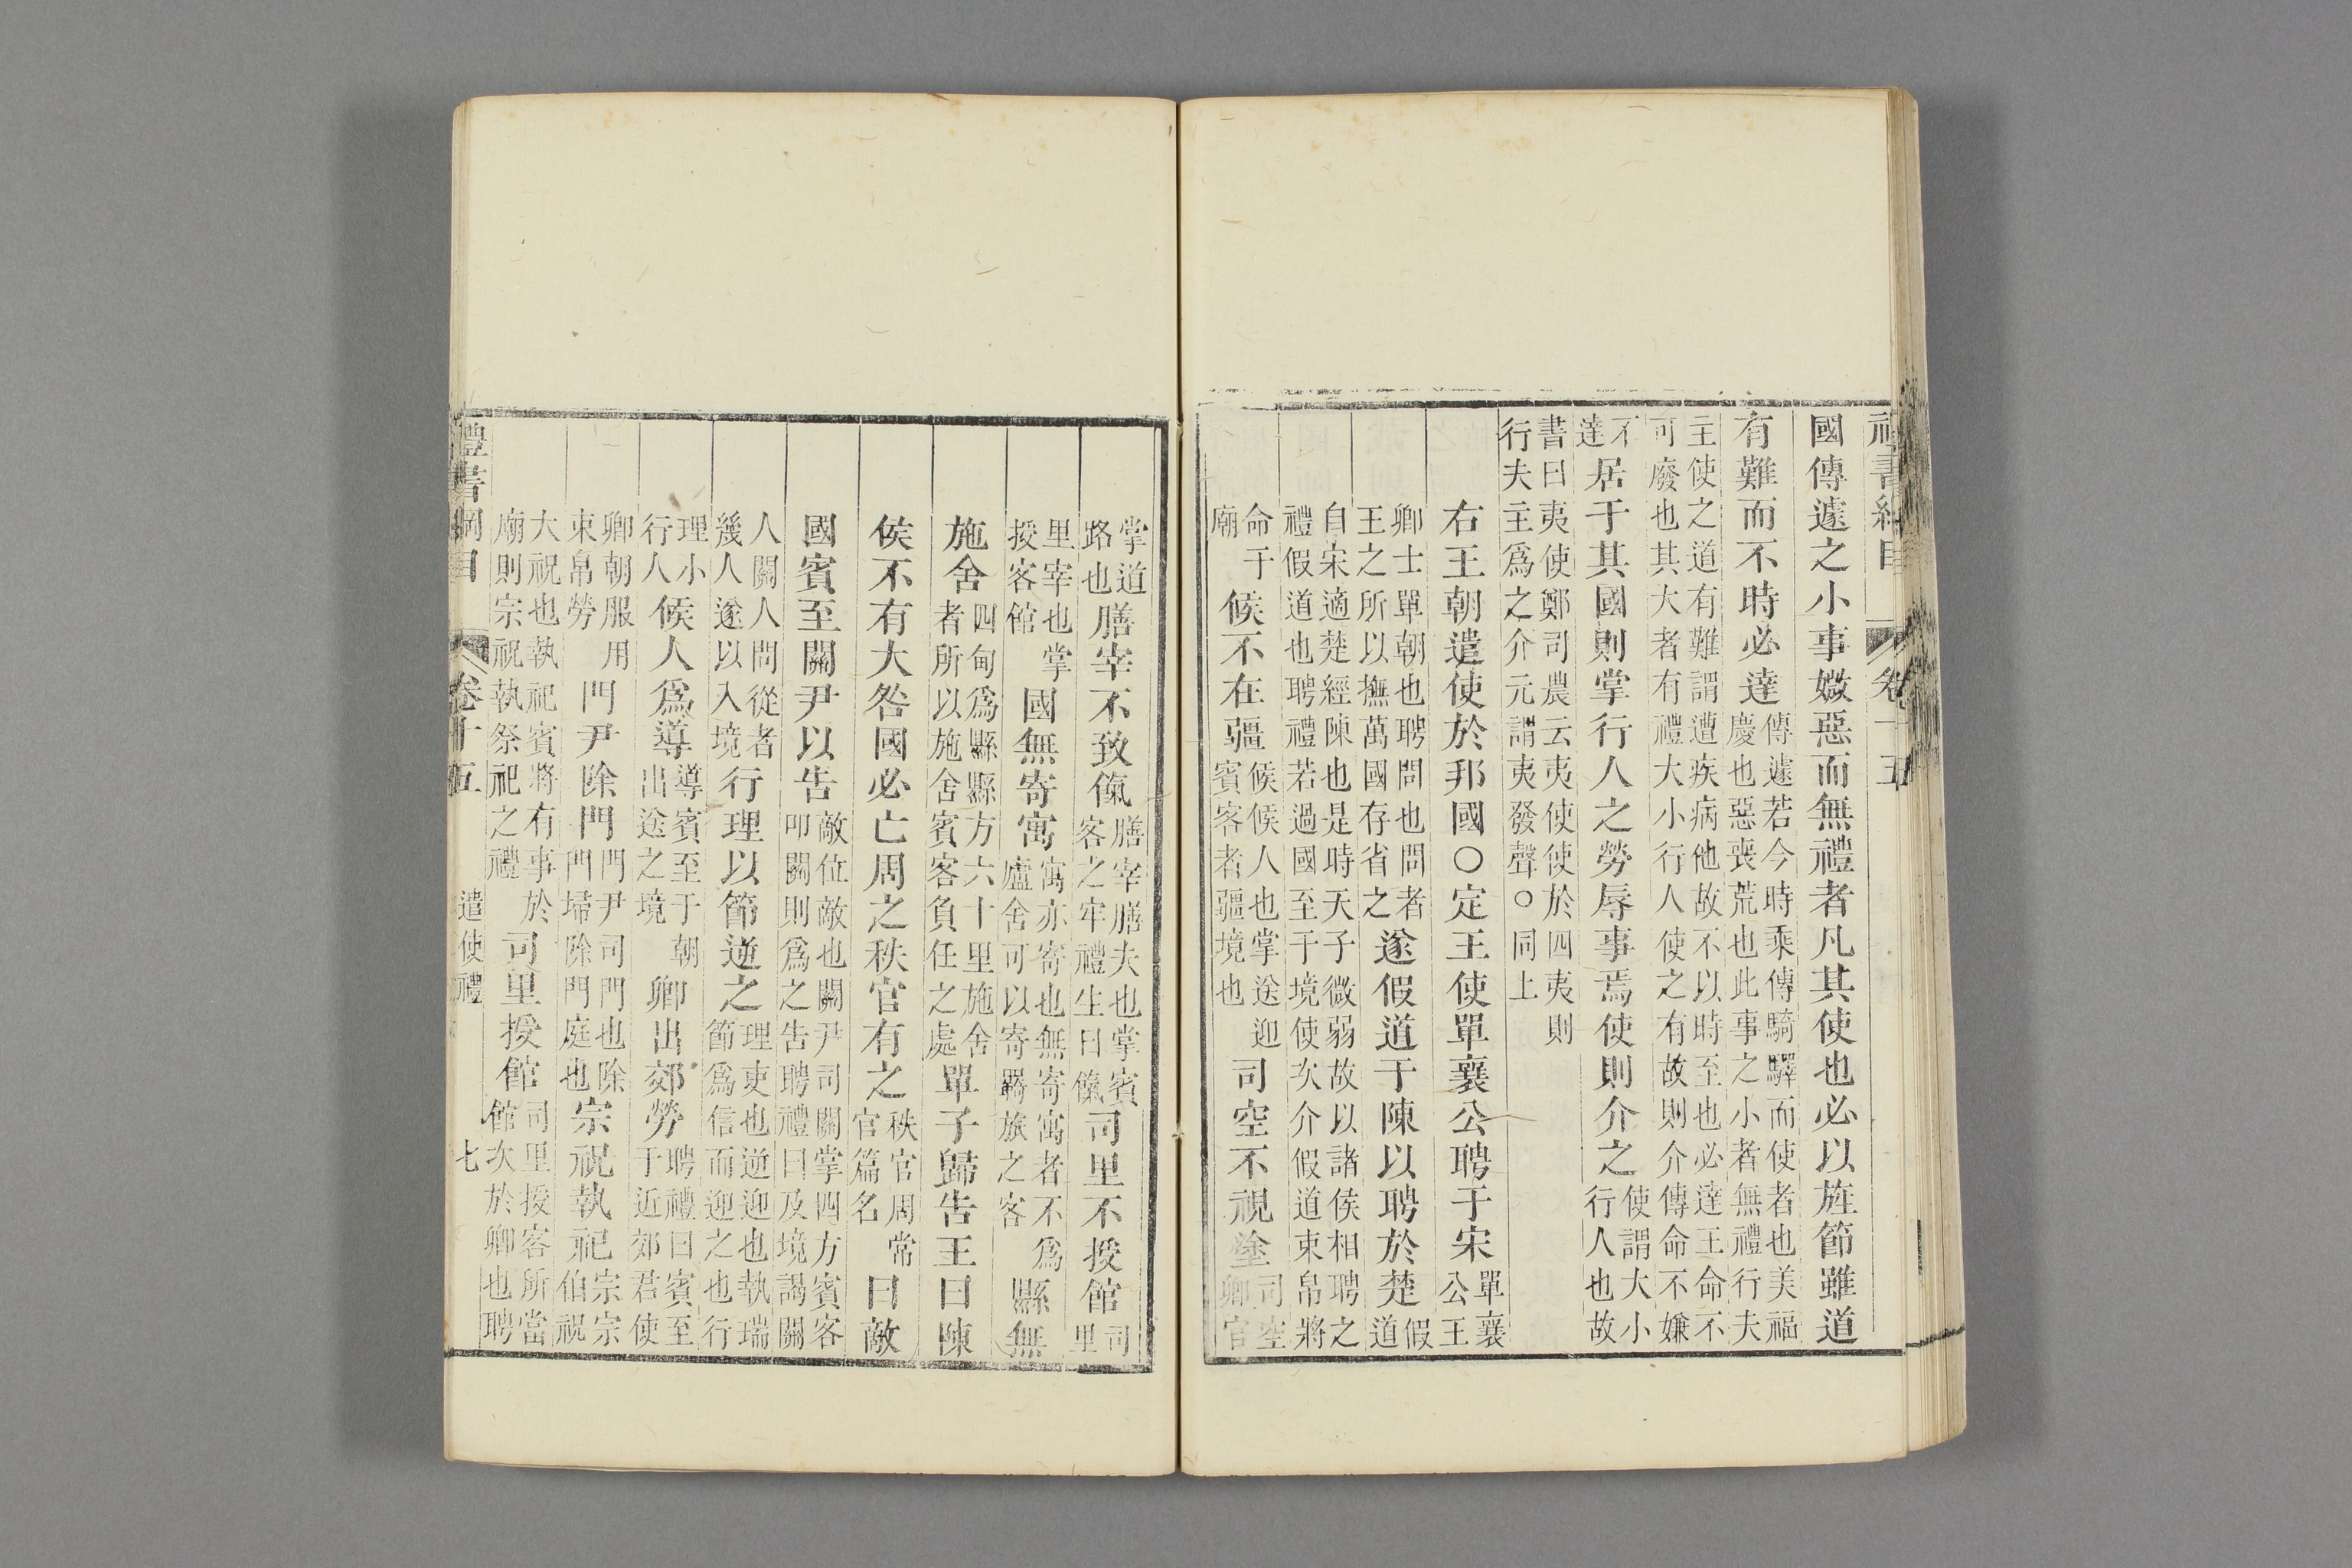 禮書綱目 卷十五
國傳遽之小事媺惡而無禮者凡其使也必以旌節雖道
有難而不時必達傳遽若今時乘傳騎驛而使者也美福慶也惡喪荒也此事之小者無禮行夫
主使之道有難謂遭疾病他故不以時至也必達王命不可廢也其大者有禮大小行人使之有故則介傳命不嫌
不達居于其國則掌行人之勞辱事焉使則介之使謂大小行人也故
書曰夷使鄭司農云夷使使於四夷則行夫主爲之介元謂夷發聲○同上
右王朝遣使於邦國○定王使單襄公聘于宋單襄公王
卿士單朝也聘問也問者王之所以撫萬國存省之遂假道于陳以聘於楚假道
自宋適楚經陳也是時天子微弱故以諸侯相聘之禮假道也聘禮若過國至于境使次介假道束帛將
命于廟候不在疆候候人也掌送迎賓客者疆境也司空不視塗司空卿官
掌道路也膳宰不致餼膳宰膳夫也掌賓客之牢禮生曰餼司里不授館司里
里宰也掌授客館國無寄寓寓亦寄也無寄寓者不爲廬舍可以寄羇旅之客縣無
施舍四甸爲縣縣方六十里施舍者所以施舍賓客負任之處單子歸告王曰陳
侯不有大咎國必亡周之秩官有之秩官周常官篇名曰敵
國賓至關尹以告敵位敵也關尹司關掌四方賓客叩關則爲之告聘禮曰及境謁關
人關人問從者幾人遂以入境行理以節逆之理吏也逆迎也執瑞節爲信而迎之也行
理小行人候人爲導導賓至于朝出送之境卿出郊勞聘禮曰賓至于近郊君使
卿朝服用束帛勞門尹除門門尹司門也除門埽除門庭也宗祝執祀宗宗伯祝
大祝也執祀賓將有事於廟則宗祝執祭祀之禮司里授館司里授客所當館次於卿也聘
禮書綱目 卷十五 遣使禮 七